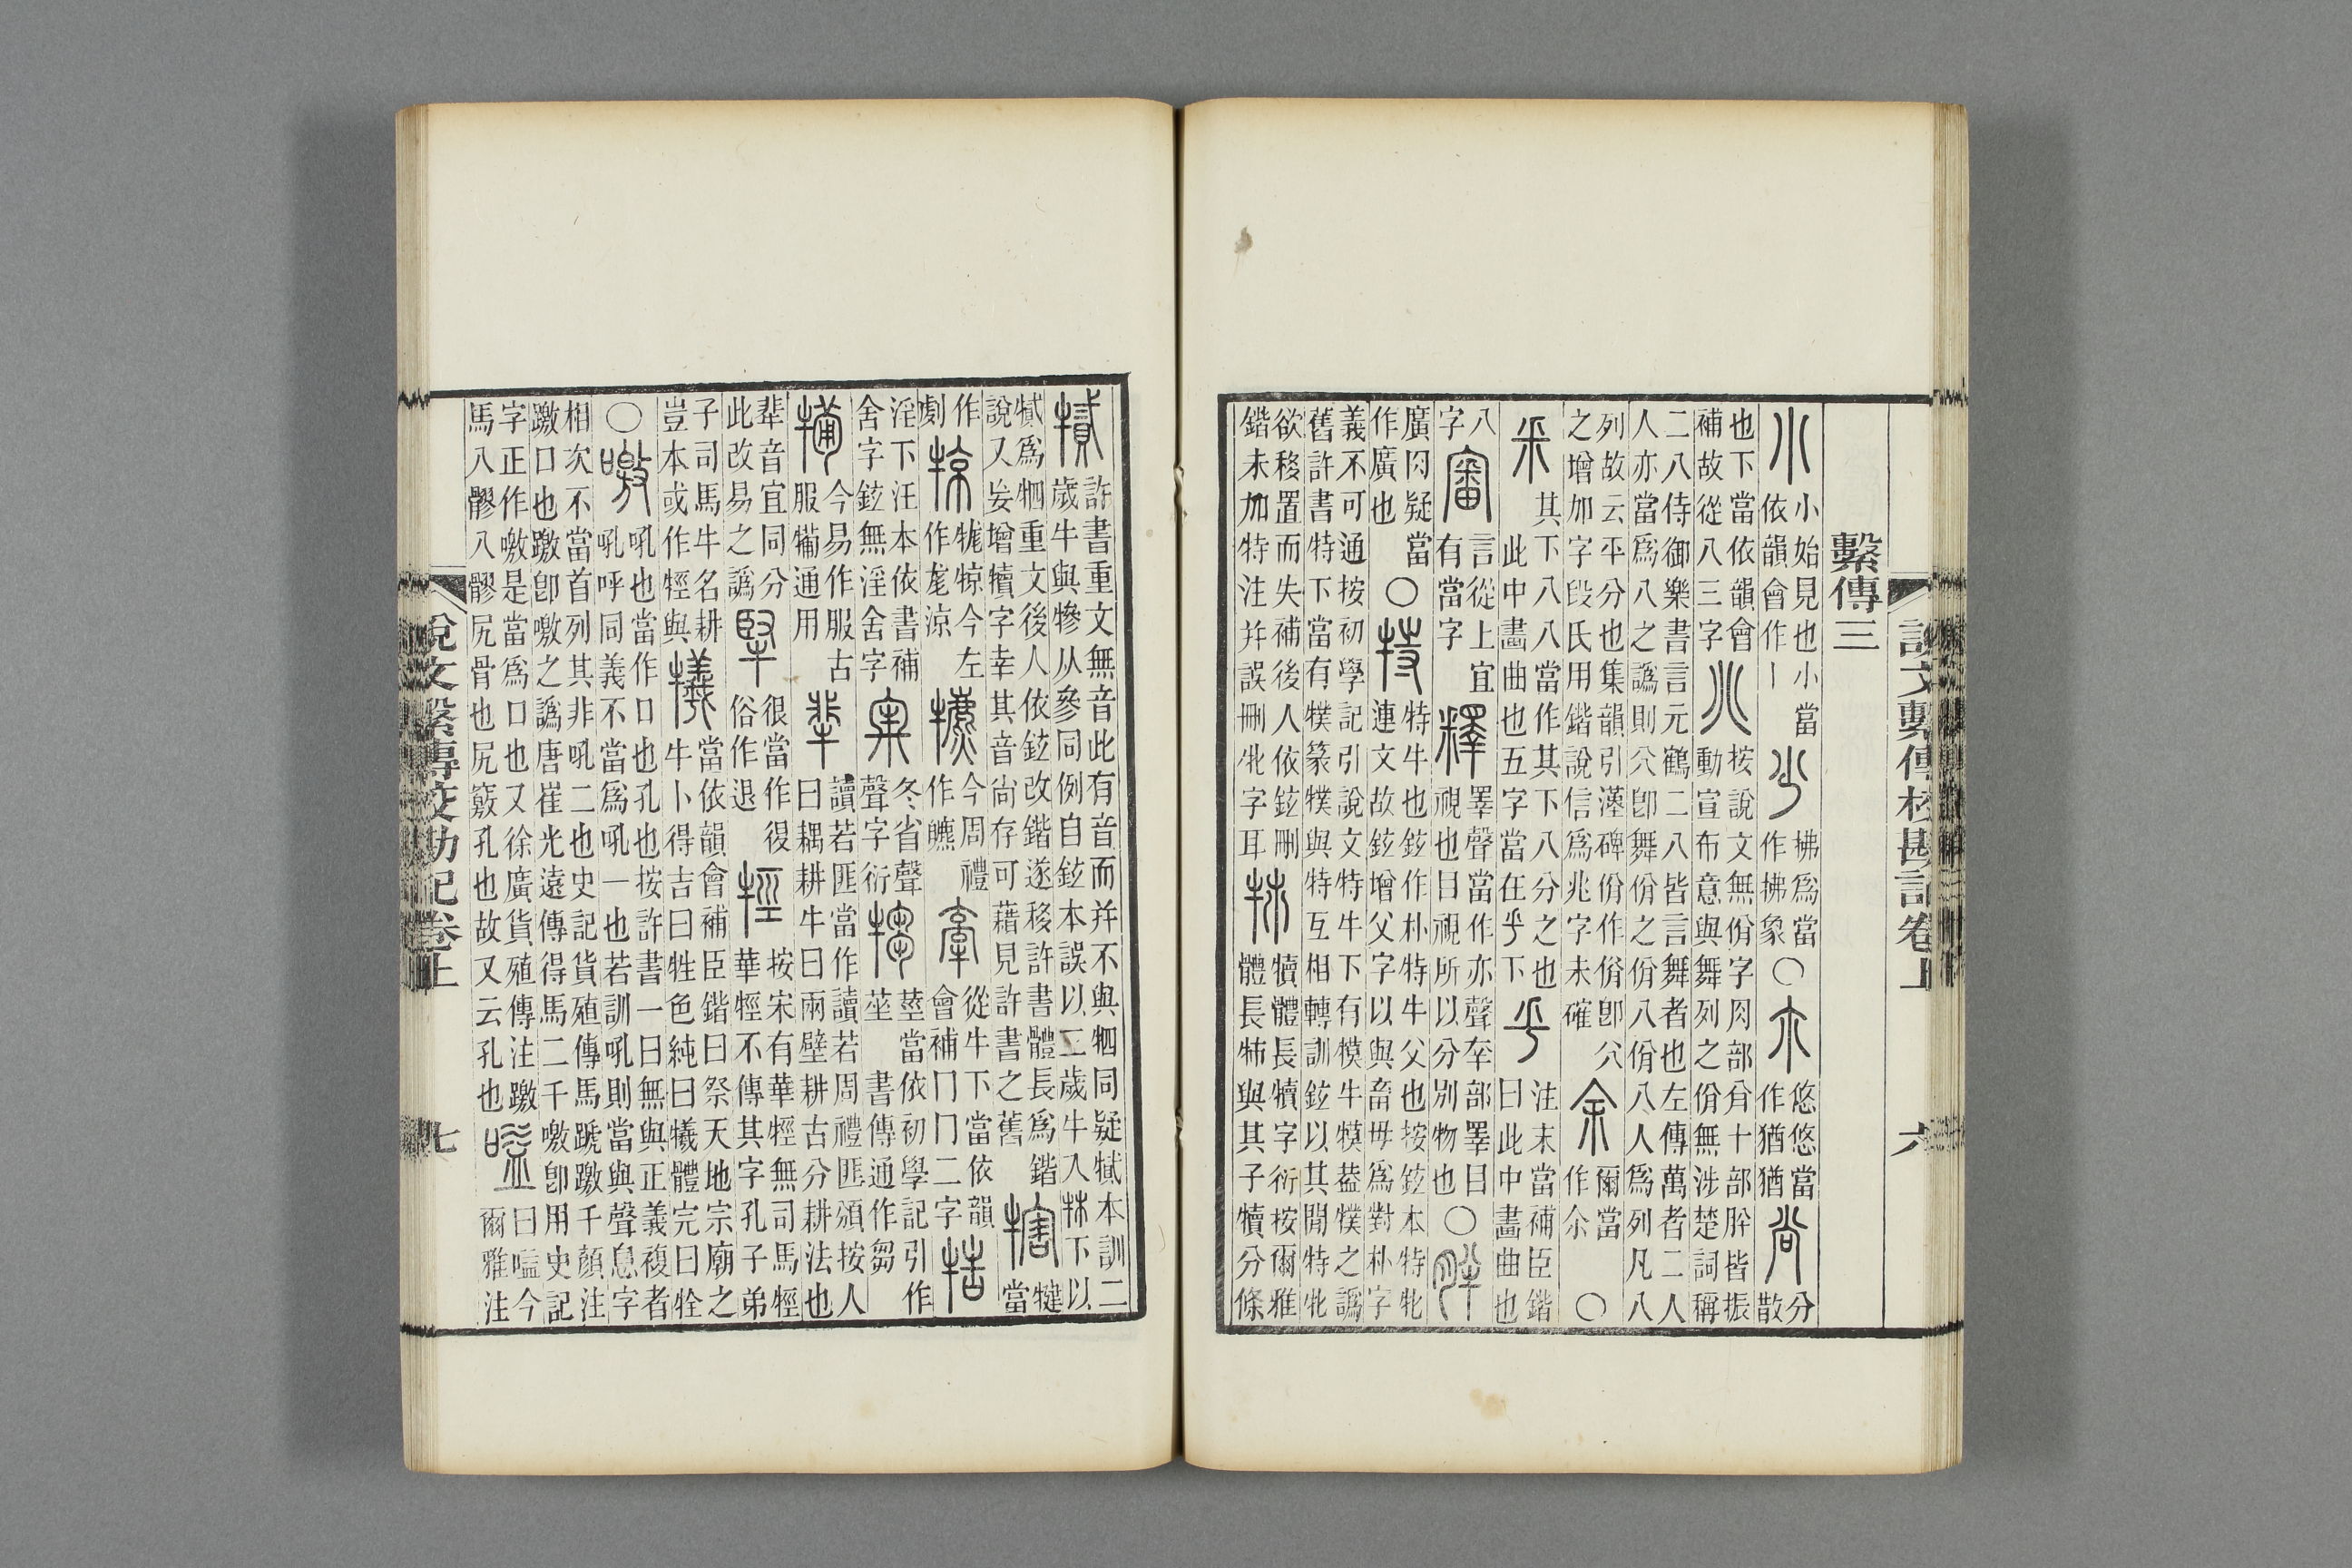 繫傳三
小 小始見也小當
依韻會作丨 少 拂爲當
作拂象〇 悠悠當
作猶猶 尚 分
散
也下當依韻會
補故從八三字 按說文無佾字肉部䏌十部肸皆振
動宣布意與舞列之佾無涉楚詞稱
二八侍御樂書言元鶴二八皆言舞者也左傳萬者二人
人亦當爲八之譌則𠔁卽舞佾之佾八佾八人爲列凡八
列故云平分也集韻引漢碑佾作卽𠔁
之增加字段氏用鍇說信爲兆字未確 余 爾當
作尒 〇
釆 其下八八當作其下八分之也
此中畫曲也五字當在乎下 注末當補臣鍇
曰此中畫曲也
八
字 審 言從上宜
有當字 釋 睪聲當作亦聲㚔部睪目
視也目視所以分別物也 〇 胖
廣肉疑當
作廣也 〇 特 特牛也鉉作朴特牛父也按鉉本特牝
連文故鉉增父字以與畜母爲對朴字
義不可通按初學記引說文特牛下有牛葢之譌
舊許書特下當有篆與特互相轉訓鉉以其閒特牝
欲移置而失補後人依鉉刪
鍇未加特注幷誤刪牝字耳 㹑 犢體長犢字衍按爾雅
體長㸬與其子犢分條
說文繫傳校勘記卷上 六
許書重文無音此有音而幷不與牭同疑本訓二
歲牛與犙从參同例自鉉本誤以二歲牛入㹑下以
爲牭重文後人依鉉改鍇遂移許書體長爲鍇
說又妄增犢字幸其音尚存可藉見許書之舊 犗 犍
當
作
劇 㹁 牻㹁今左
作尨涼 犥 今周禮
作皫 牽 從牛下當依韻
會補冂冂二字 牿
淫下汪本依書補
舍字鉉無淫舍字 牢 冬省聲
聲字衍 犓 莖當依初學記引作
莝 書傳通作芻
犕 今易作服古
服犕通用 讀若匪當作讀若周禮匪頒按人
曰耦耕牛曰兩壁耕古分耕法也
音宜同分
此改易之譌 很當作
俗作退 牼 按宋有華牼無司馬牼
華牼不傳其字孔子弟
子司馬牛名耕
豈本或作牼與 犧 當依韻會補臣鍇曰祭天地宗廟之
牛卜得吉曰牲色純曰犧體完曰牷
〇 噭 吼也當作口也孔也按許書一曰無與正義複者
吼呼同義不當爲吼一也若訓吼則當與聲息字
相次不當首列其非吼二也史記貨殖傳馬蹏躈千顏注
躈口也躈卽噭之譌唐崔光遠傳得馬二千噭卽用史記
字正作噭是當爲口也又徐廣貨殖傳注躈
馬八髎八髎尻骨也尻竅孔也故又云孔也 噬 曰嗑今
爾雅注
說文繫傳校勘記卷上 七